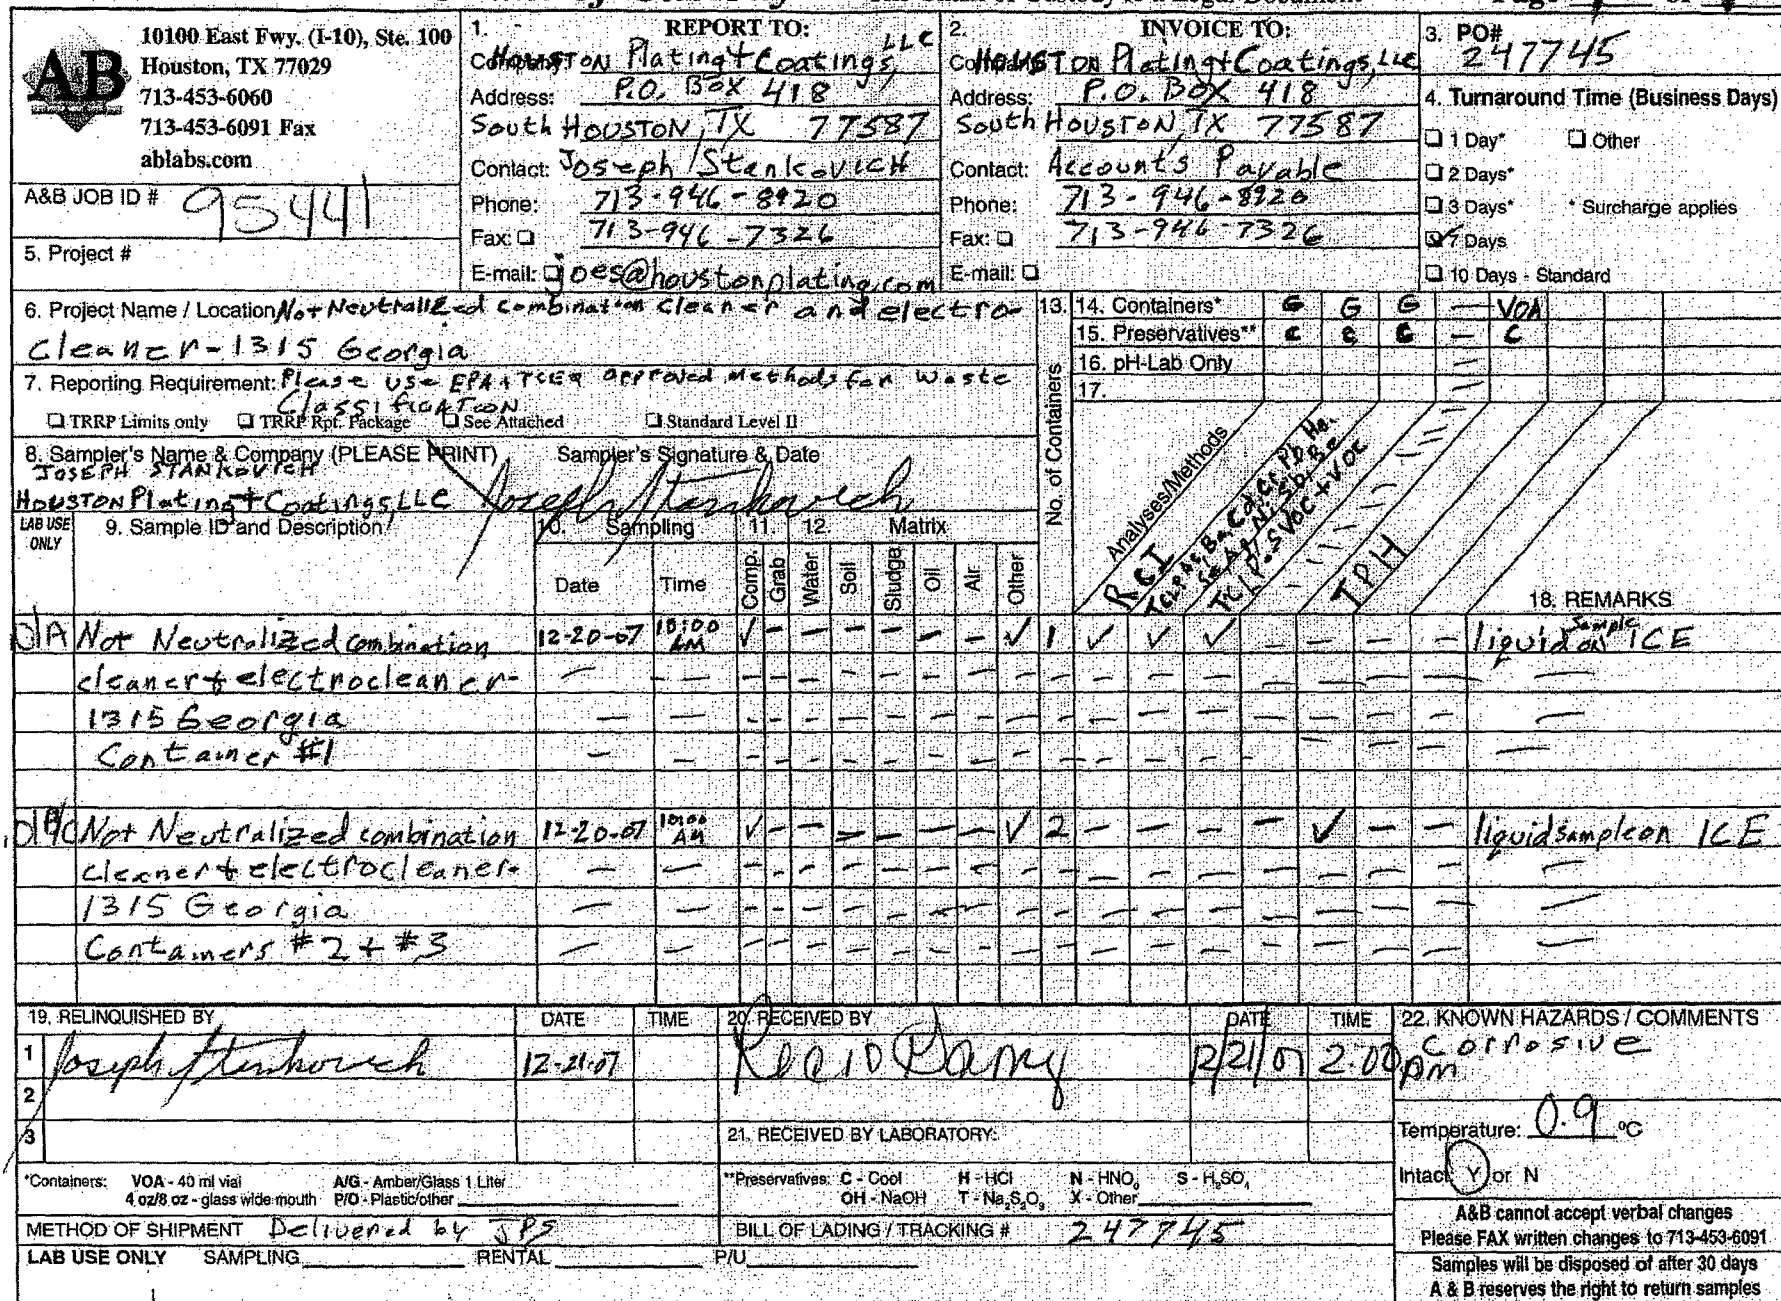 10100 East Fwy. (I-10), Ste. 100
Houston, TX 77029
713-453-6060
713-453-6091 Fax
ablabs.com
A&B
A&B JOB ID # 95441
5. Project #
1. REPORT TO:
Houston Plating + Coatings, LLC
Address: P.O. Box 418
South Houston, TX 77587
Contact: Joseph Stankovich
Phone: 713-946-8920
Fax: 713-946-7326
E-mail: joes@houstonplating.com
2. INVOICE TO:
Houston Plating + Coatings, LLC
Address: P.O. Box 418
South Houston, TX 77587
Contact: Accounts Payable
Phone: 713-946-8920
Fax: 713-946-7326
E-mail:
3. PO# 247745
4. Turnaround Time (Business Days)
1 Day* Other
2 Days*
3 Days* * Surcharge applies
7 Days
10 Days - Standard
6. Project Name / Location Not Neutralized combination cleaner and electro-
cleaner - 1315 Georgia
7. Reporting Requirement: Please use EPA + TCEQ approved methods for waste
Classification
TRRP Limits only TRRP Rpt. Package See Attached Standard Level II
8. Sampler's Name & Company (PLEASE PRINT) Sampler's Signature & Date
JOSEPH STANKOVICH
Houston Plating + Coatings, LLC Joseph Stankovich
13. No. of Containers
14. Containers* G G G — VOA
15. Preservatives** C C C — C
16. pH-Lab Only
17.
Analyses/Methods
RCI
TCLP As, Ba, Cd, Cr, Pb, Hg,
Se, Ag, Ni, Sb, Be
TCLP-SVOC + VOC
TPH
LAB USE ONLY
9. Sample ID and Description
10. Sampling 11. 12. Matrix
Date Time Comp. Grab Water Soil Sludge Oil Air Other
18. REMARKS
01A Not Neutralized combination 12-20-07 10:00 AM ✓ — — — — — — ✓ 1 ✓ ✓ ✓ — — — — liquid sample on ICE
cleaner + electrocleaner-
1315 Georgia
Container #1
01B/C Not Neutralized combination 12-20-07 10:00 AM ✓ — — — — — — ✓ 2 — — — — ✓ — — liquid sample on ICE
cleaner + electrocleaner-
1315 Georgia
Containers #2 + #3
19. RELINQUISHED BY DATE TIME 20. RECEIVED BY DATE TIME
1 Joseph Stankovich 12-21-07 12/21/07 2:00 pm
2
3
21. RECEIVED BY LABORATORY:
22. KNOWN HAZARDS / COMMENTS
Corrosive
Temperature: 0.9 °C
Intact Y or N
*Containers: VOA - 40 ml vial A/G - Amber/Glass 1 Liter
4 oz/8 oz - glass wide mouth P/O - Plastic/other
**Preservatives: C - Cool H - HCl N - HNO3 S - H2SO4
OH - NaOH T - Na2S2O3 X - Other
METHOD OF SHIPMENT Delivered by JPS
BILL OF LADING / TRACKING # 247745
LAB USE ONLY SAMPLING RENTAL P/U
A&B cannot accept verbal changes
Please FAX written changes to 713-453-6091
Samples will be disposed of after 30 days
A & B reserves the right to return samples